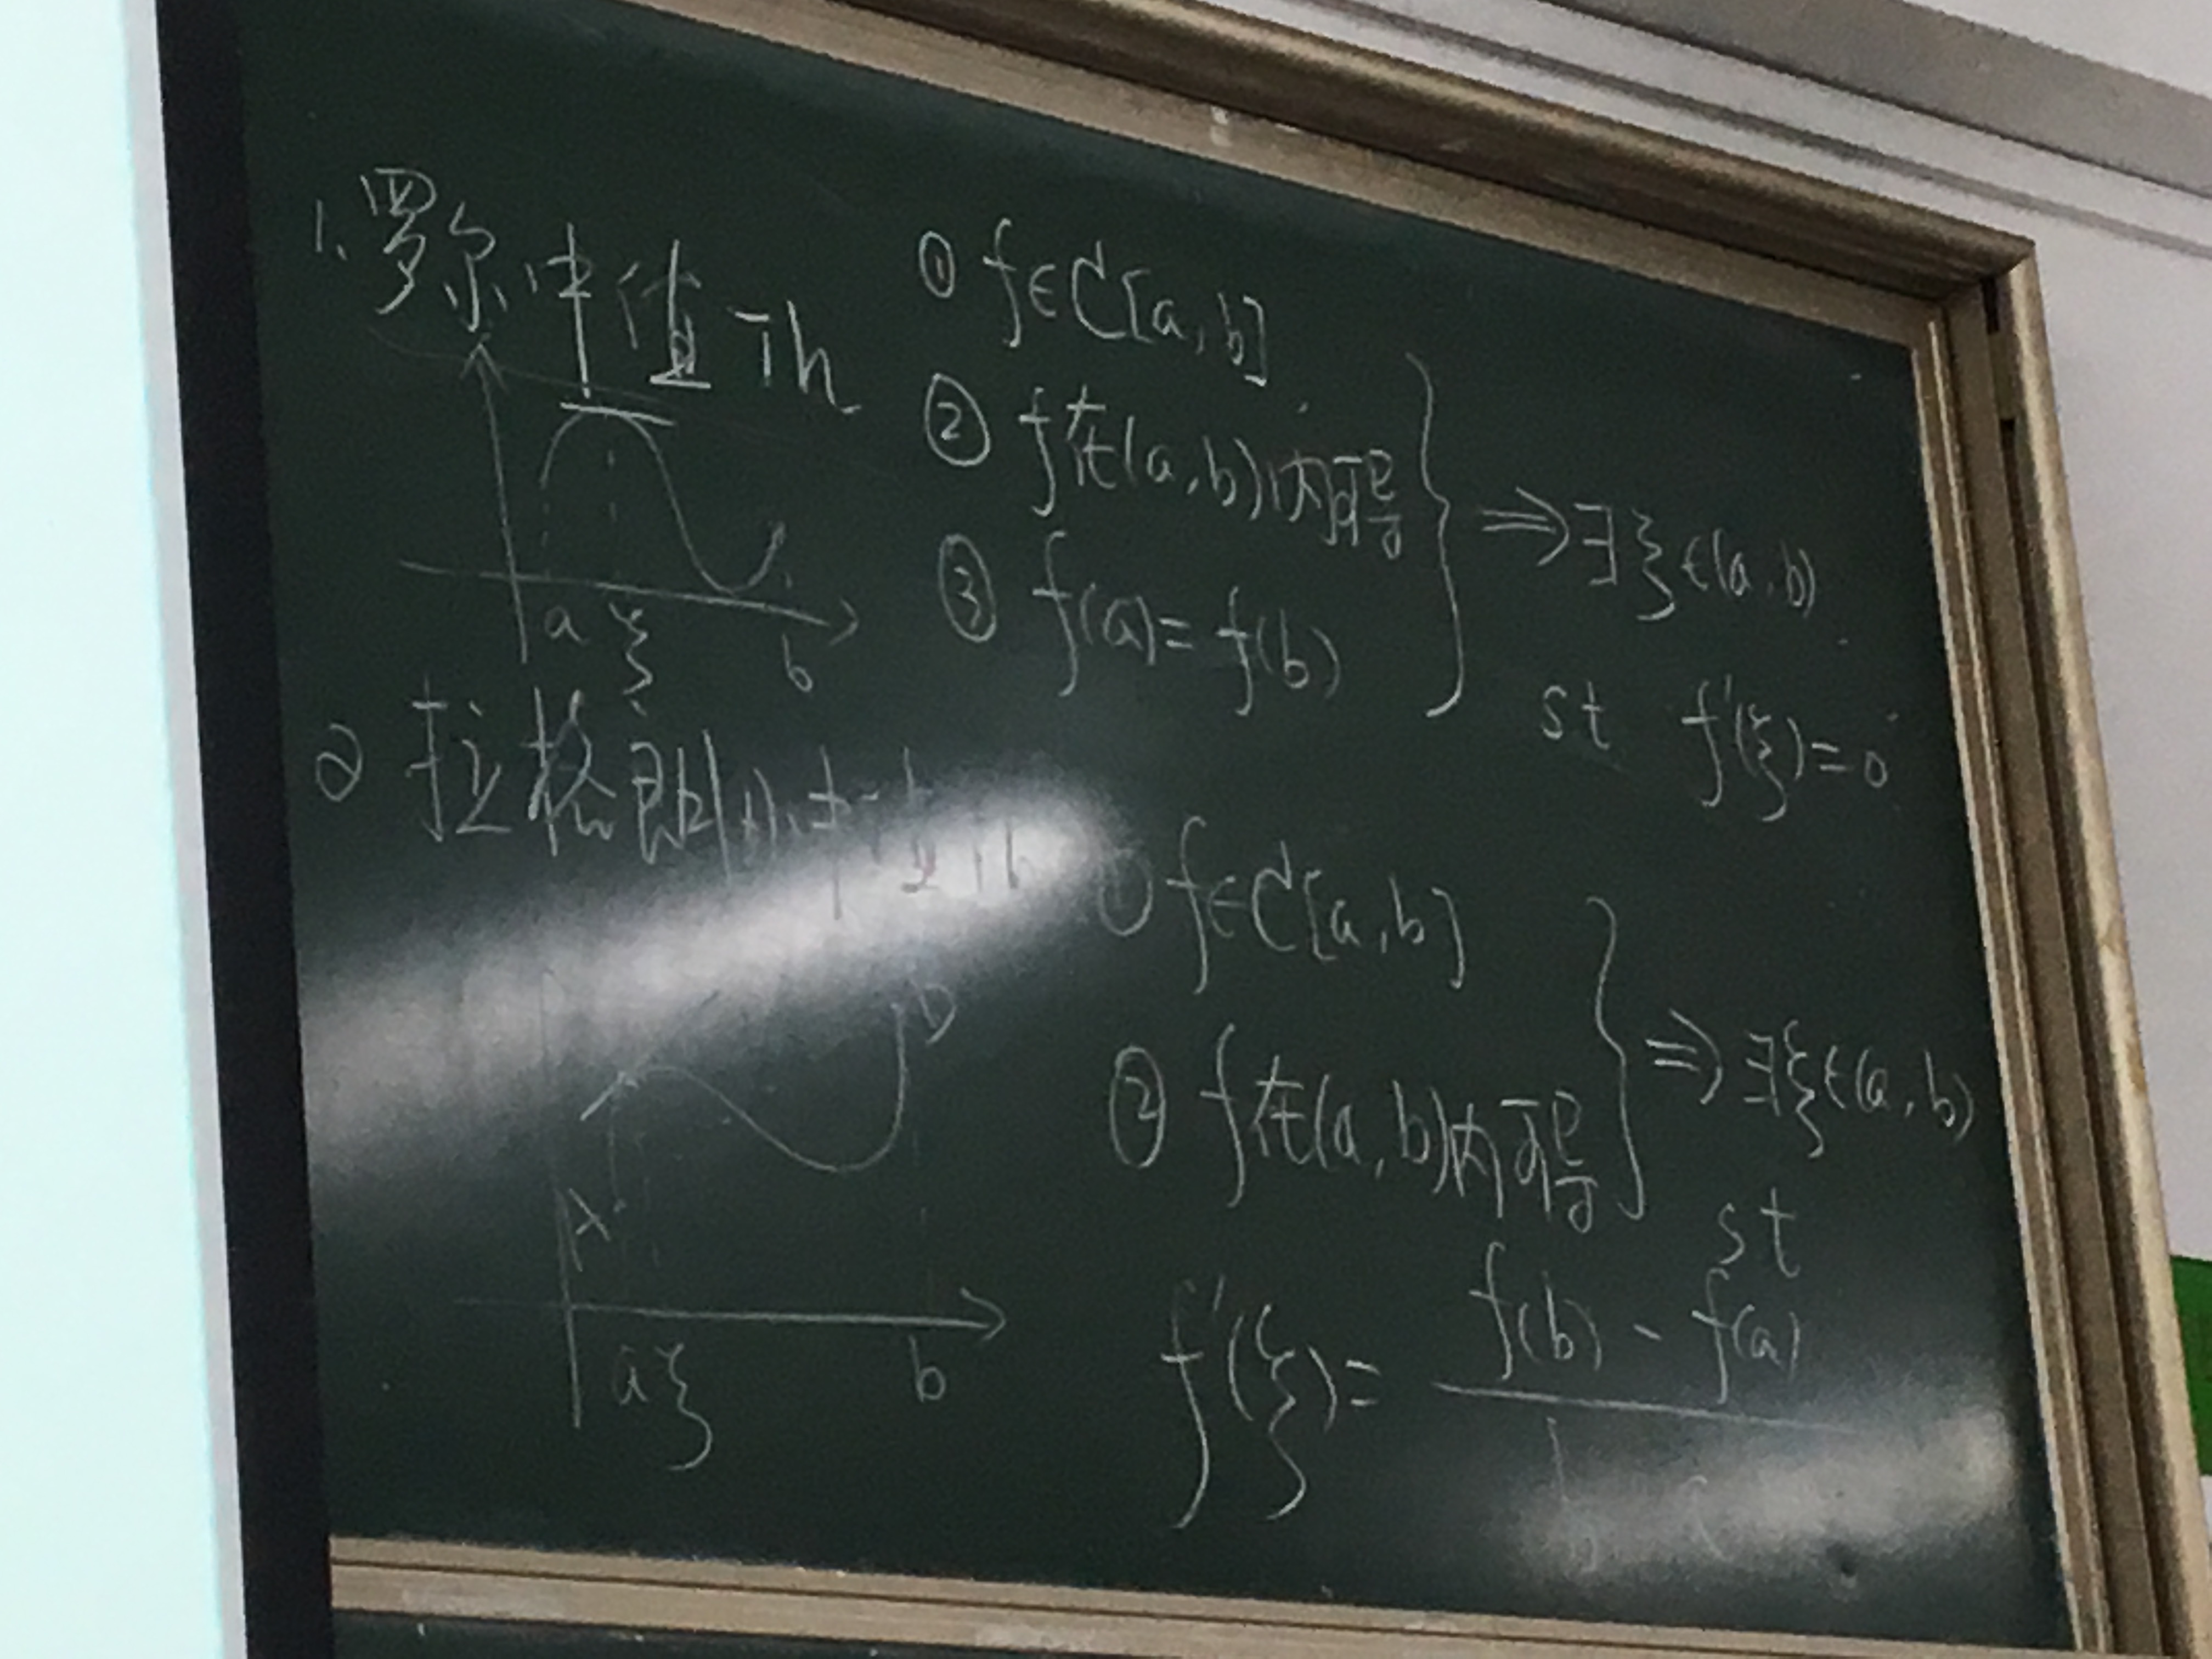 1. 罗尔中值Th
① f∈C[a,b]
② f在(a,b)内可导
③ f(a)=f(b)
⇒∃ξ∈(a,b)
st f'(ξ)=0
a ξ b
2 拉格朗日中值Th
① f∈C[a,b]
② f在(a,b)内可导
⇒∃ξ∈(a,b)
st
f'(ξ)= f(b)-f(a)
b a
a ξ b